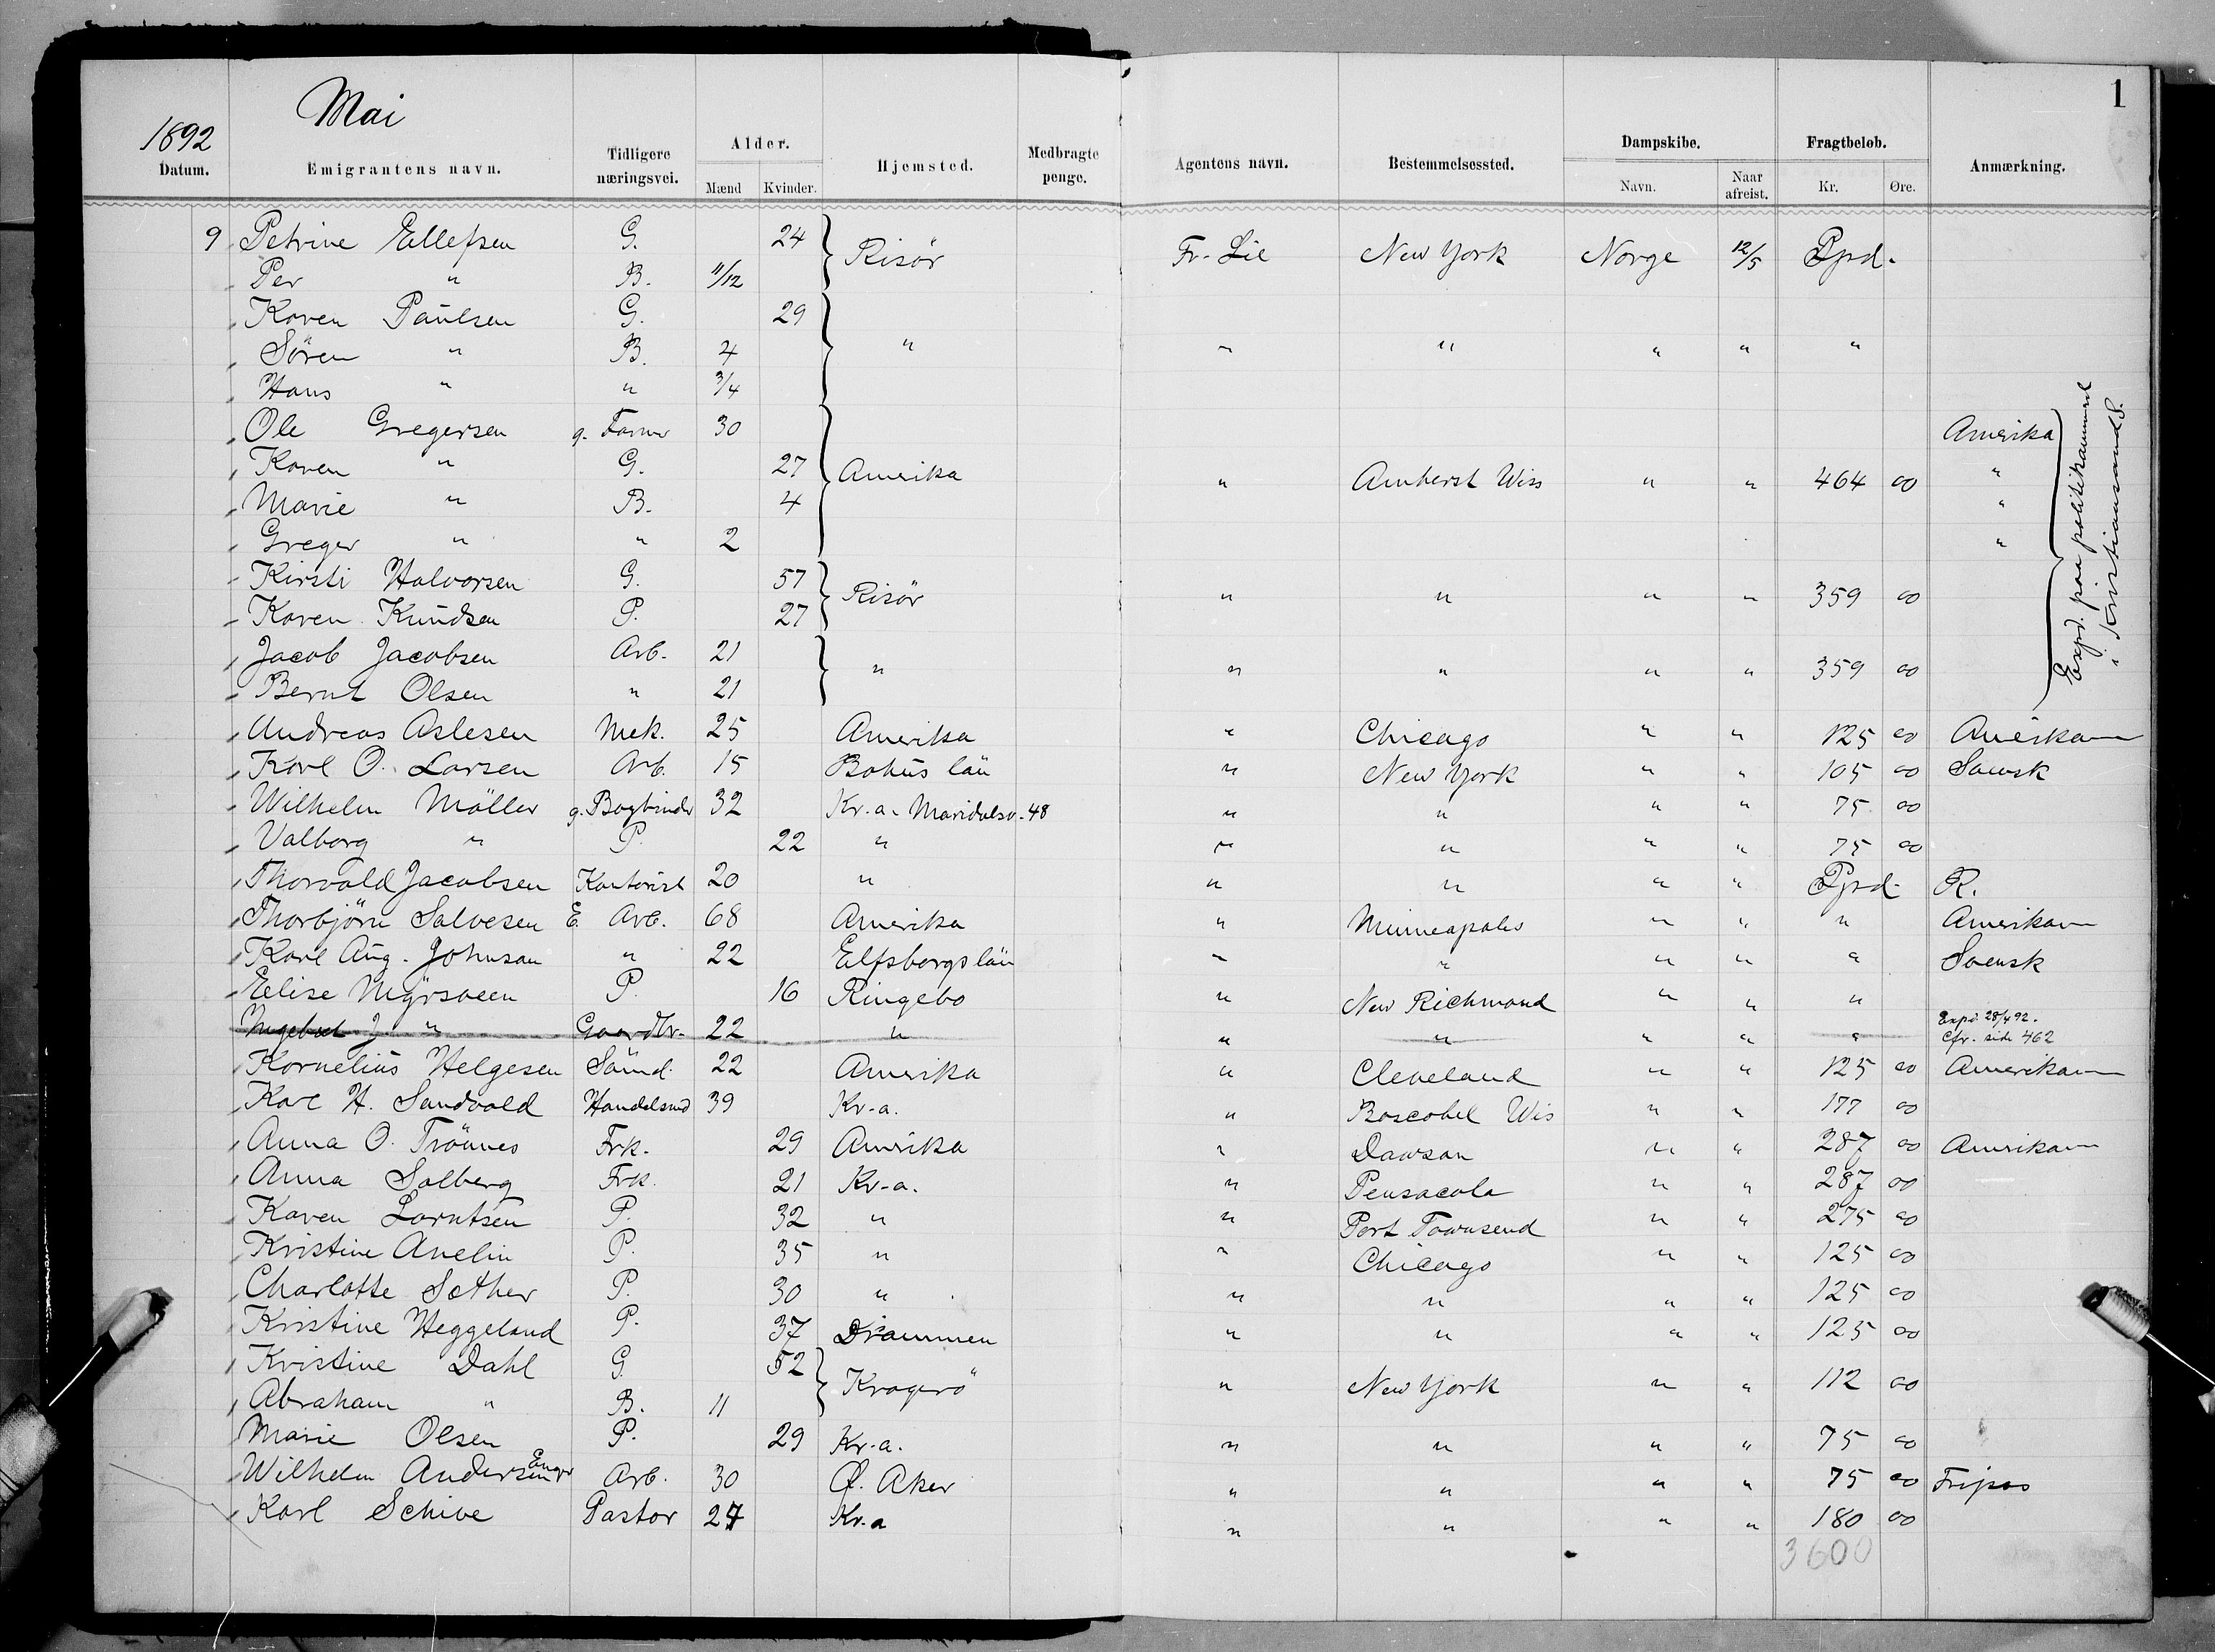 1
Mai
1892
Datum. Emigrantens navn. Tidligere næringsvei. Alder. Mænd Kvinder. Hjemsted. Medbragte penge. Agentens navn. Bestemmelsessted. Dampskibe. Navn. Naar afreist. Fragtbeløb. Kr. Øre. Anmærkning.
9 Petrine Ellefsen G. 24 Risör Fr. Lie New York Norge 12/5 Pprd.
Per " B. 11/12
Karen Paulsen G. 29
Sören " B. 4 " " " " " "
Hans " " 3/4
Ole Gregersen g. Farmer 30 Amerika
Karen " G. 27 Amerika " Amherst Wiss " " 464 00 "
Marie " B. 4 "
Greger " " 2 "
Kirsti Halvorsen G. 57 Risör " " " " 359 00
Karen Knudsen P. 27
Jacob Jacobsen Arb. 21 " " " " " 359 00
Bernt Olsen " 21
Expd. paa politikammeret
i Kristianssand S.
Andreas Aslesen Mek. 25 Amerika " Chicago " " 125 00 Amerikaner
Karl O. Larsen Arb. 15 Bohus län " New York " " 105 00 Svensk
Wilhelm Möller g. Bogbinder 32 Kr.a. Maridalsv. 48 " " " " 75 00
Valborg " P. 22 " " " " " 75 00
Thorvald Jacobsen Kontorist 20 " " " " " Pprd. R.
Thorbjörn Salvesen E. Arb. 68 Amerika " Minneapolis " " " Amerikaner
Karl Aug. Johnson " 22 Elfsborgs län " " " " " Svensk
Elise Myrsveen P. 16 Ringebo " New Richmond " " "
Ingebret J " Gaardbr. 22 " " " " " " Expd. 28/4 92. Cfr. side 462
Kornelius Helgesen Sömd. 22 Amerika " Cleveland " " 125 00 Amerikaner
Karl H. Sandvold Handelsmd 39 Kr.a. " Boscobel Wis " " 177 00
Anna O. Trönnes Frk. 29 Amerika " Dawson " " 287 00 Amerikaner
Anna Solberg Frk. 21 Kr.a. " Pensacola " " 287 00
Karen Lorntsen P. 32 " " Port Townsend " " 275 00
Kristine Avelin P. 35 " " Chicago " " 125 00
Charlotte Sether P. 30 " " " " " 125 00
Kristine Heggeland P. 37 Drammen " " " " 125 00
Kristine Dahl G. 52 Kragerö " New York " " 112 00
Abraham " B. 11
Marie Olsen P. 29 Kr.a. " " " " 75 00
Wilhelm Andersen Enger Arb. 30 Ø. Aker " " " " 75 00 Fripas
Karl Schive Pastor 27 Kr.a " " " " 180 00
3600